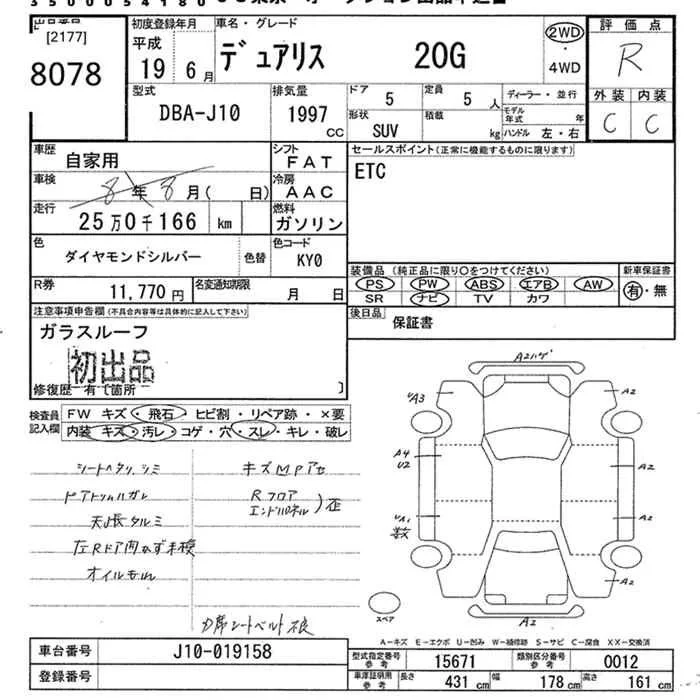 [2177]
8078
初度登録年月
平成
19 6月
車名・グレード
デュアリス 20G
2WD
4WD
評価点
R
型式
DBA-J10
排気量
1997
CC
ドア
5
定員
5 人
ディーラー・並行
形状
SUV
積載
kg
モデル年式 年
ハンドル 左・右
外装 内装
C C
車歴
自家用
シフト
FAT
車検
8年 8月( 日)
冷房
AAC
走行
25万0千166 km
燃料
ガソリン
セールスポイント(正常に機能するものに限ります)
ETC
色
ダイヤモンドシルバー
色替
色コード
KY0
R券
11,770円
名変通知期限
月 日
装備品 (純正品に限り○をつけてください)
PS PW ABS エアB AW
SR ナビ TV カワ
新車保証書
有・無
後日品
保証書
注意事項申告欄(不具合内容等は具体的に記入して下さい)
ガラスルーフ
初出品
修復歴 有〔箇所 〕
検査員
記入欄
FW キズ・飛石・ヒビ割・リペア跡・×要
内装 キズ・汚レ・コゲ・穴・スレ・キレ・破レ
シートヘタリ、シミ
ドアトリムハガレ
天張タルミ
オイルもれ
キズMPアセ
Rフロア
エンドパネル
歪
A2
A3
A2
A4
U2
A2
A2
A2
A2
スペア
A-キズ E-エクボ U-凹み W-補修跡 S-サビ C-腐食 XX-交換済
車台番号
J10-019158
登録番号
型式指定番号
参考
15671
類別区分番号
参考
0012
車庫証明用
参考
長さ
431 cm
幅
178 cm
高さ
161 cm